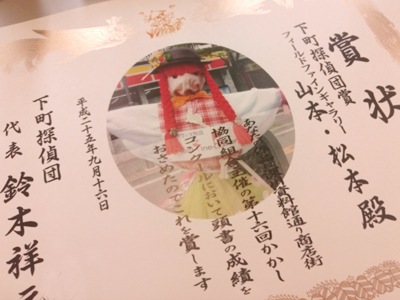 賞状
下町探偵団賞
フィールドファンギャラリー
山本・松本殿
資料館通り商店街
協同組合主催の第十六回かかし
コンクールにおいて頭書の成績を
おさめたのでこれを賞します
平成二十五年九月十六日
下町探偵団
代表 鈴木祥